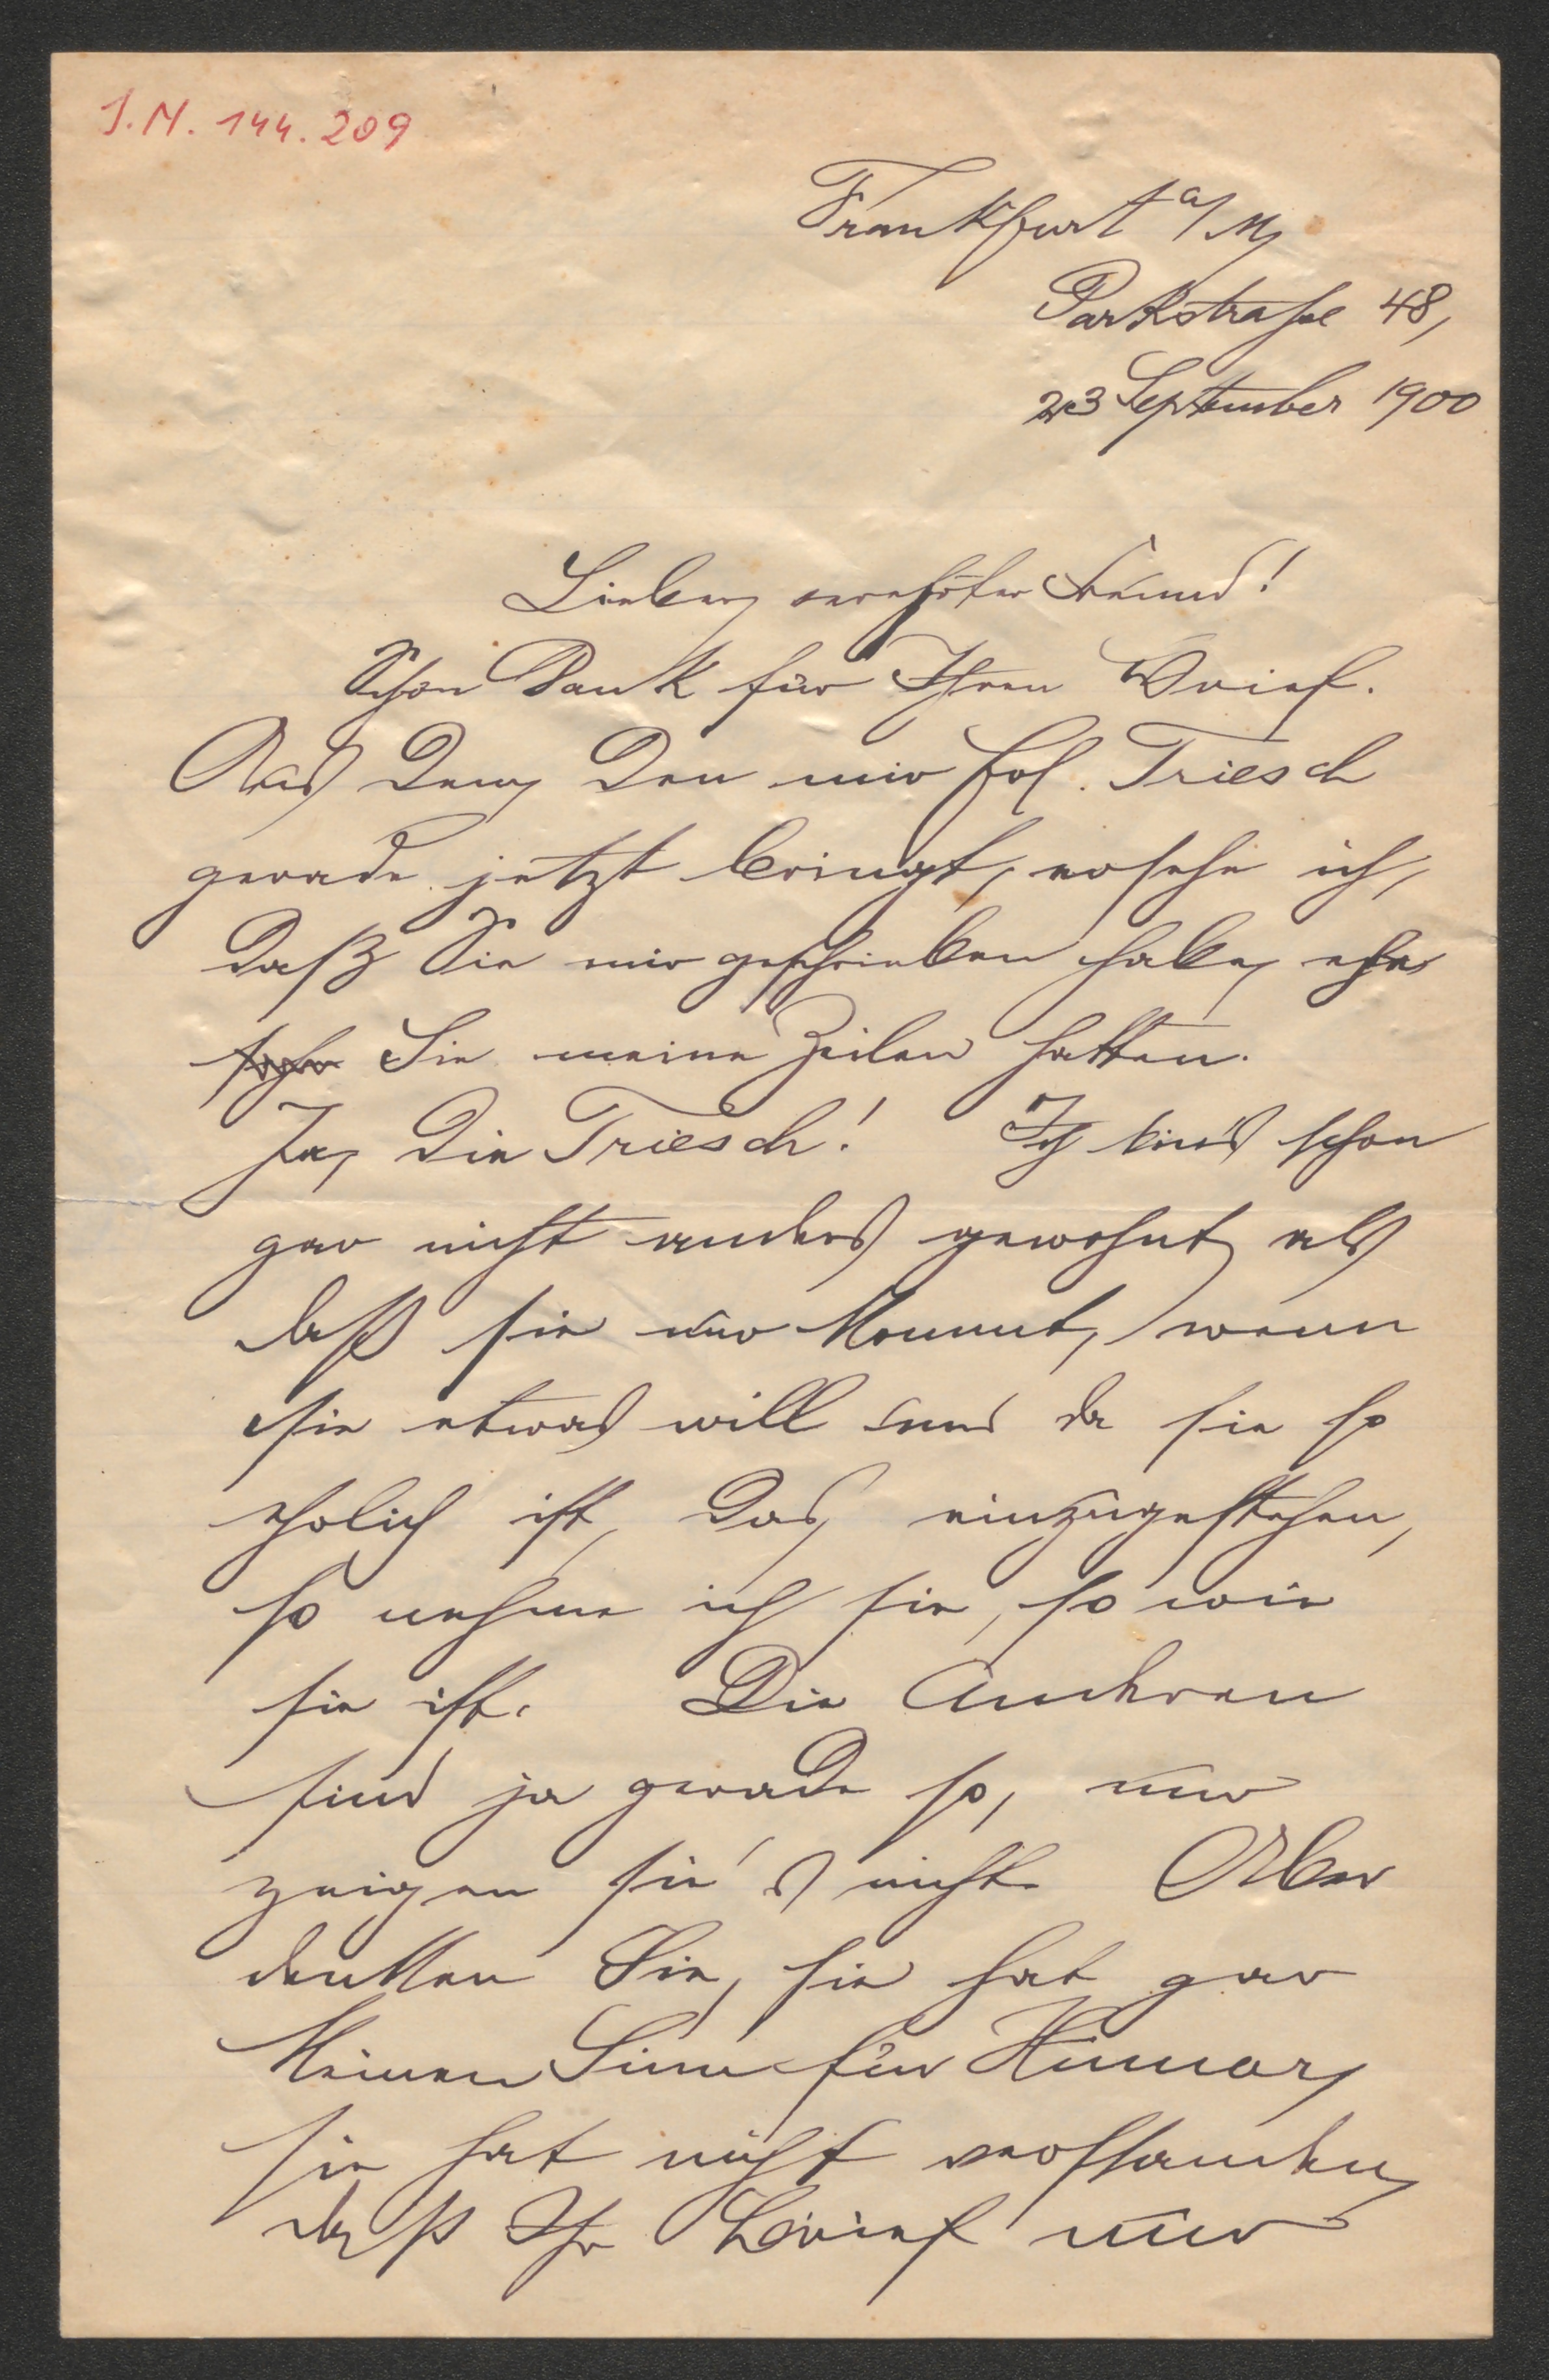 J.N. 144.209
Frankfurt a/M,
Parkstraße 48,
23 September 1900
Lieber, verehrter Freund!
Schön Dank für Ihren Brief.
Aus dem, den mir Frl. Triesch
gerade jetzt bringt, ersehe ich,
daß Sie mir geschrieben haben, ehe
Sie meine Zeilen hatten.
Ja, die Triesch! Ich bin's schon
gar nicht anders gewohnt, als
daß sie nur kommt, wenn
sie etwas will und da sie so
ehrlich ist, das einzugestehen,
so nehme ich sie, so wie
sie ist. Die Anderen
sind ja gerade so, nur
zeigen sie's nicht. Aber
denken Sie, sie hat gar
keinen Sinn für Humor,
sie hat nicht verstanden,
daß Ihr Brief nur